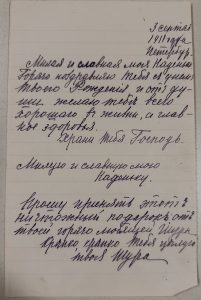 3 сентяб
1911 года
Петербург.
Милая и славная моя Наденька
Горячо поздравляю тебя с днем
твоего Рождения и от ду-
ши желаю тебе всего
хорошаго в жизни, и глав-
ное здоровья.
Храни тебя Господь.
Милую и славную мою
Наденьку.
Прошу принять этот
ничтожный подарок от
твоей горячо любящей Шуры
крепко, крепко тебя целую
твоя Шура